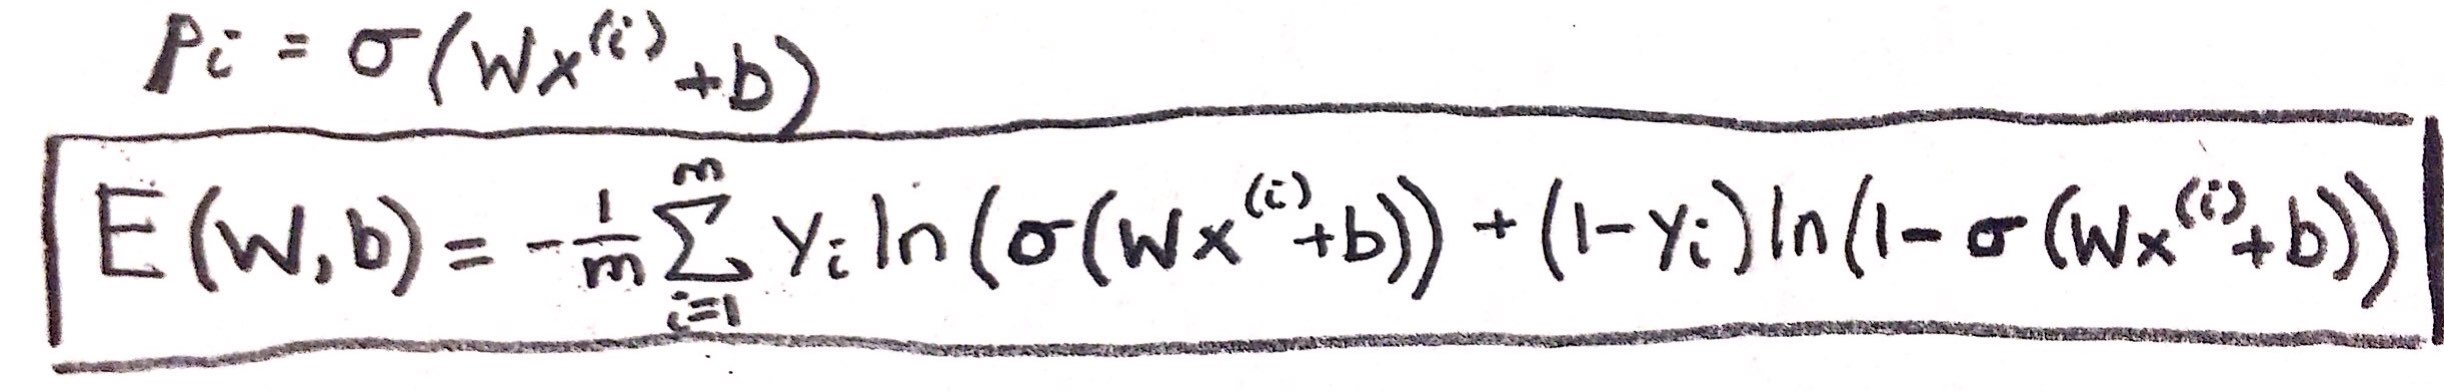 Pi = σ(Wx^(i) + b)
E(W,b) = -1/m ∑_{i=1}^{m} yi ln(σ(Wx^(i)+b)) + (1-yi) ln(1-σ(Wx^(i)+b))